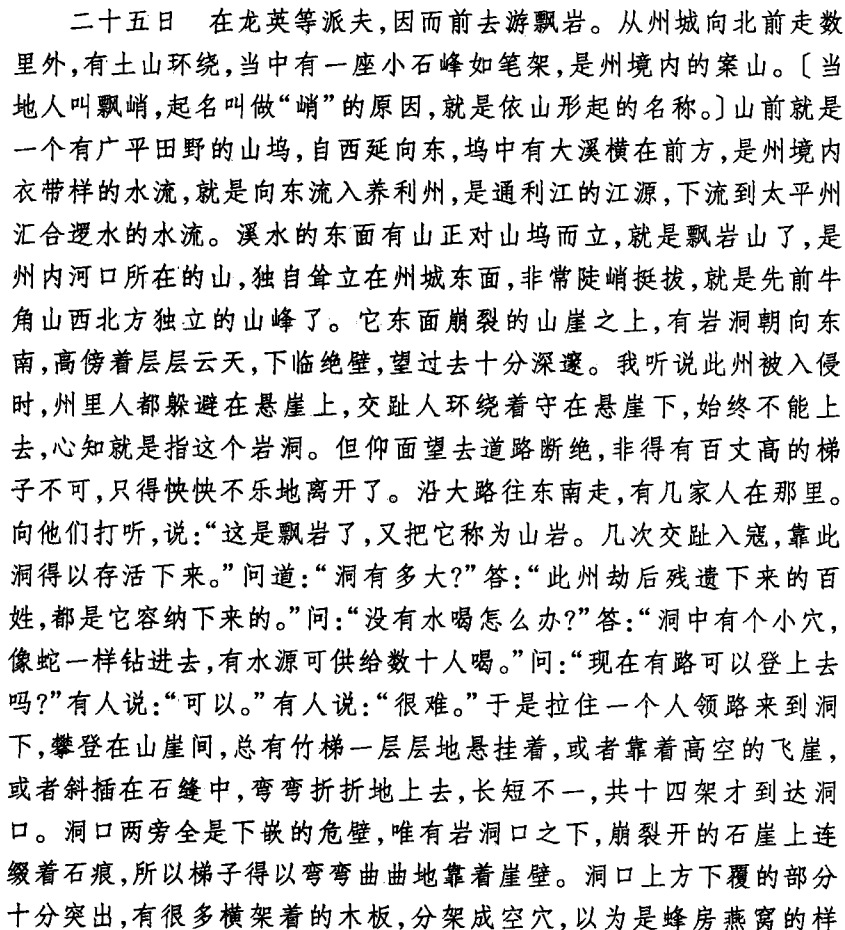 二十五日　在龙英等派夫,因而前去游飘岩。从州城向北前走数
里外,有土山环绕,当中有一座小石峰如笔架,是州境内的案山。〔当
地人叫飘峭,起名叫做“峭”的原因,就是依山形起的名称。〕山前就是
一个有广平田野的山坞,自西延向东,坞中有大溪横在前方,是州境内
衣带样的水流,就是向东流入养利州,是通利江的江源,下流到太平州
汇合逻水的水流。溪水的东面有山正对山坞而立,就是飘岩山了,是
州内河口所在的山,独自耸立在州城东面,非常陡峭挺拔,就是先前牛
角山西北方独立的山峰了。它东面崩裂的山崖之上,有岩洞朝向东
南,高傍着层层云天,下临绝壁,望过去十分深邃。我听说此州被入侵
时,州里人都躲避在悬崖上,交趾人环绕着守在悬崖下,始终不能上
去,心知就是指这个岩洞。但仰面望去道路断绝,非得有百丈高的梯
子不可,只得怏怏不乐地离开了。沿大路往东南走,有几家人在那里。
向他们打听,说:“这是飘岩了,又把它称为山岩。几次交趾入寇,靠此
洞得以存活下来。”问道:“洞有多大?”答:“此州劫后残遗下来的百
姓,都是它容纳下来的。”问:“没有水喝怎么办?”答:“洞中有个小穴,
像蛇一样钻进去,有水源可供给数十人喝。”问:“现在有路可以登上去
吗?”有人说:“可以。”有人说:“很难。”于是拉住一个人领路来到洞
下,攀登在山崖间,总有竹梯一层层地悬挂着,或者靠着高空的飞崖,
或者斜插在石缝中,弯弯折折地上去,长短不一,共十四架才到达洞
口。洞口两旁全是下嵌的危壁,唯有岩洞口之下,崩裂开的石崖上连
缀着石痕,所以梯子得以弯弯曲曲地靠着崖壁。洞口上方下覆的部分
十分突出,有很多横架着的木板,分架成空穴,以为是蜂房燕窝的样